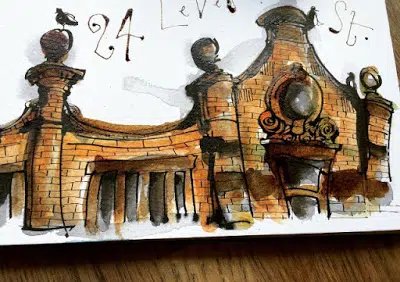 24 Leve St.